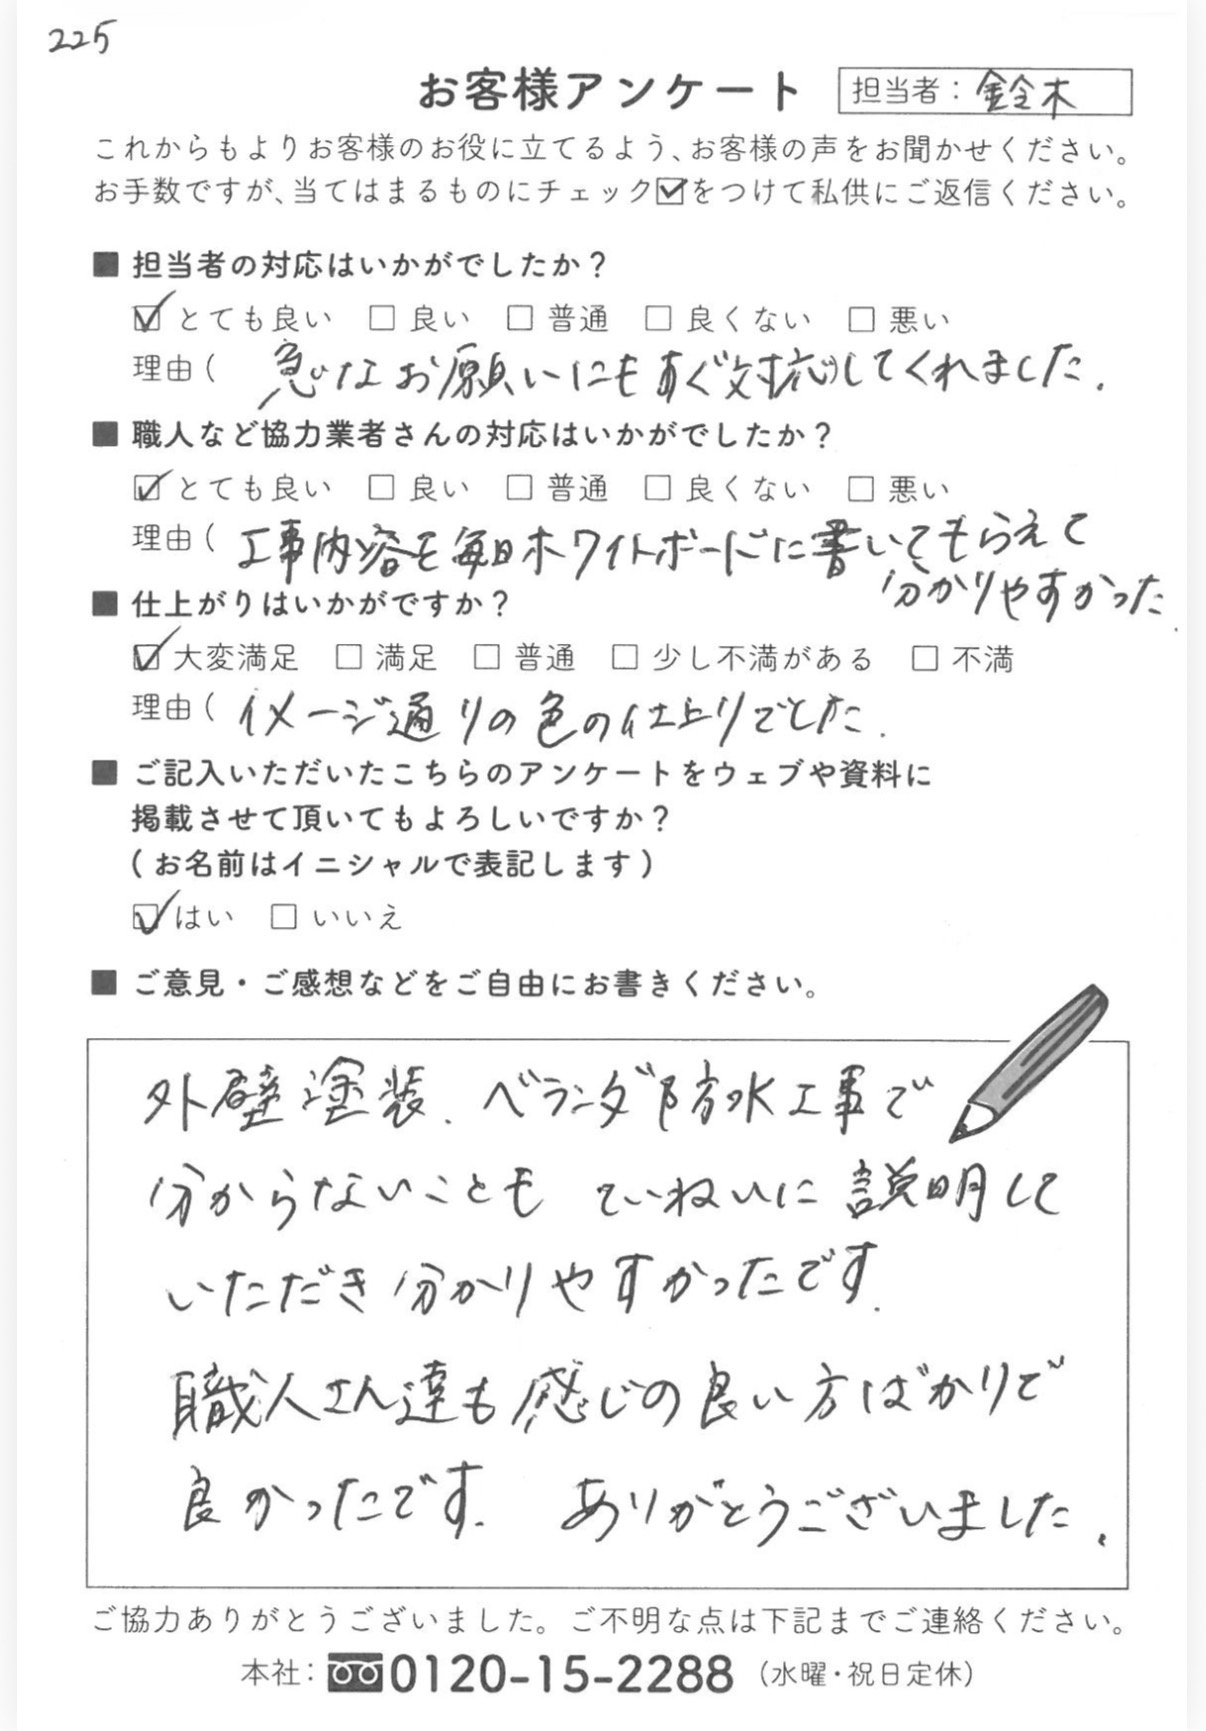 225
お客様アンケート
担当者：鈴木
これからもよりお客様のお役に立てるよう、お客様の声をお聞かせください。
お手数ですが、当てはまるものにチェック☑をつけて私供にご返信ください。
■ 担当者の対応はいかがでしたか？
☑とても良い □ 良い □ 普通 □ 良くない □ 悪い
理由（ 急なお願いにもすぐ対応してくれました.
■ 職人など協力業者さんの対応はいかがでしたか？
☑とても良い □ 良い □ 普通 □ 良くない □ 悪い
理由（ 工事内容を毎日ホワイトボードに書いてもらえて
分かりやすかった.
■ 仕上がりはいかがですか？
☑大変満足 □ 満足 □ 普通 □ 少し不満がある □ 不満
理由（ イメージ通りの色の仕上りでした.
■ ご記入いただいたこちらのアンケートをウェブや資料に
掲載させて頂いてもよろしいですか？
（お名前はイニシャルで表記します）
☑はい □ いいえ
■ ご意見・ご感想などをご自由にお書きください。
外壁塗装、ベランダ防水工事で
分からないことも ていねいに説明して
いただき分かりやすかったです.
職人さん達も感じの良い方ばかりで
良かったです. ありがとうございました.
ご協力ありがとうございました。ご不明な点は下記までご連絡ください。
本社：0120-15-2288（水曜・祝日定休）